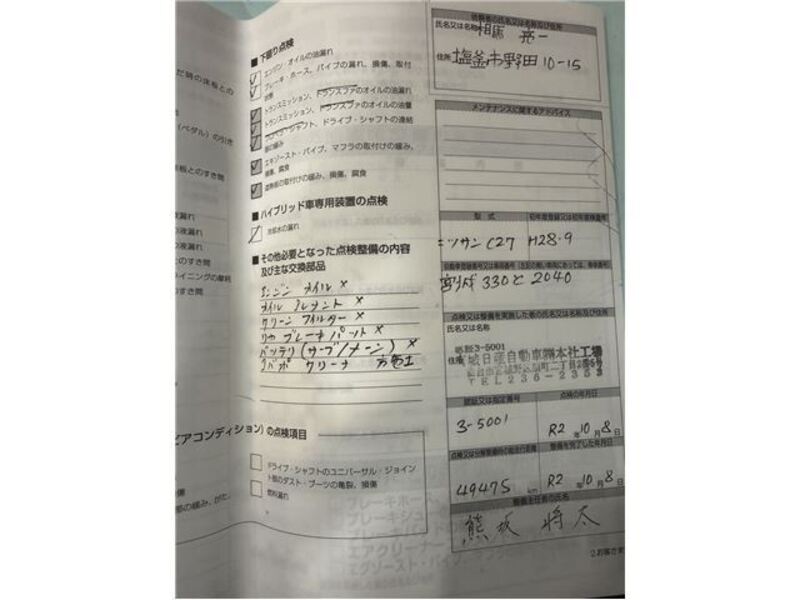 だ時の床板との
(ペダル)の引き
床板とのすき間
液漏れ
の液漏れ
の液漏れ
とのすき間
ライニングの摩耗
とのすき間
■ 下廻り点検
エンジン・オイルの油漏れ
ブレーキ・ホース、パイプの漏れ、損傷、取付
状態
トランスミッション、トランスファのオイルの油漏れ
トランスミッション、トランスファのオイルの油量
プロペラ・シャフト、ドライブ・シャフトの連結
部の緩み
エキゾースト・パイプ、マフラの取付けの緩み、
損傷、腐食
遮熱板の取付けの緩み、損傷、腐食
■ ハイブリッド車専用装置の点検
冷却水の漏れ
■ その他必要となった点検整備の内容
及び主な交換部品
エンジン オイル ×
オイル エレメント ×
クリーン フィルター ×
リヤ ブレーキ パット ×
バッテリ (サーブ/メーン) ×
エバポ クリーナ
ピアコンディション)の点検項目
ドライブ・シャフトのユニバーサル・ジョイン
ト部のダスト・ブーツの亀裂、損傷
燃料漏れ
損傷
部の緩み、がた、
依頼者の氏名又は名称及び住所
氏名又は名称 相馬 亮一
住所 塩釜市野田10-15
メンテナンスに関するアドバイス
型式
初年度登録又は初度検査年月
ニッサン C27 H28.9
宮城 330 と 2040
点検又は整備を実施した者の氏名又は名称及び住所
氏名又は名称
認証3-5001
住所 宮城日産自動車㈱本社工場
TEL 236-2353
認証又は指定番号
点検の年月日
3-5001 R2 年 10 月 8 日
整備を完了した年月日
49475 km R2 年 10 月 8 日
整備主任者の氏名
熊坂 将太
ブレーキホー
ブレーキシュ
エアクリーナー
エグゾースト・パイプ
2.お客さま